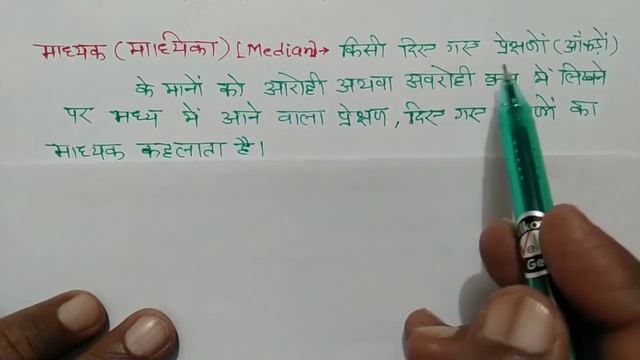 माध्यक (माध्यिका) [Median]→ किसी दिए गए प्रेक्षणों (आँकड़ों)
के मानों को आरोही अथवा अवरोही में लिखने
पर मध्य में आने वाला प्रेक्षण, दिए गए का
माध्यक कहलाता है।